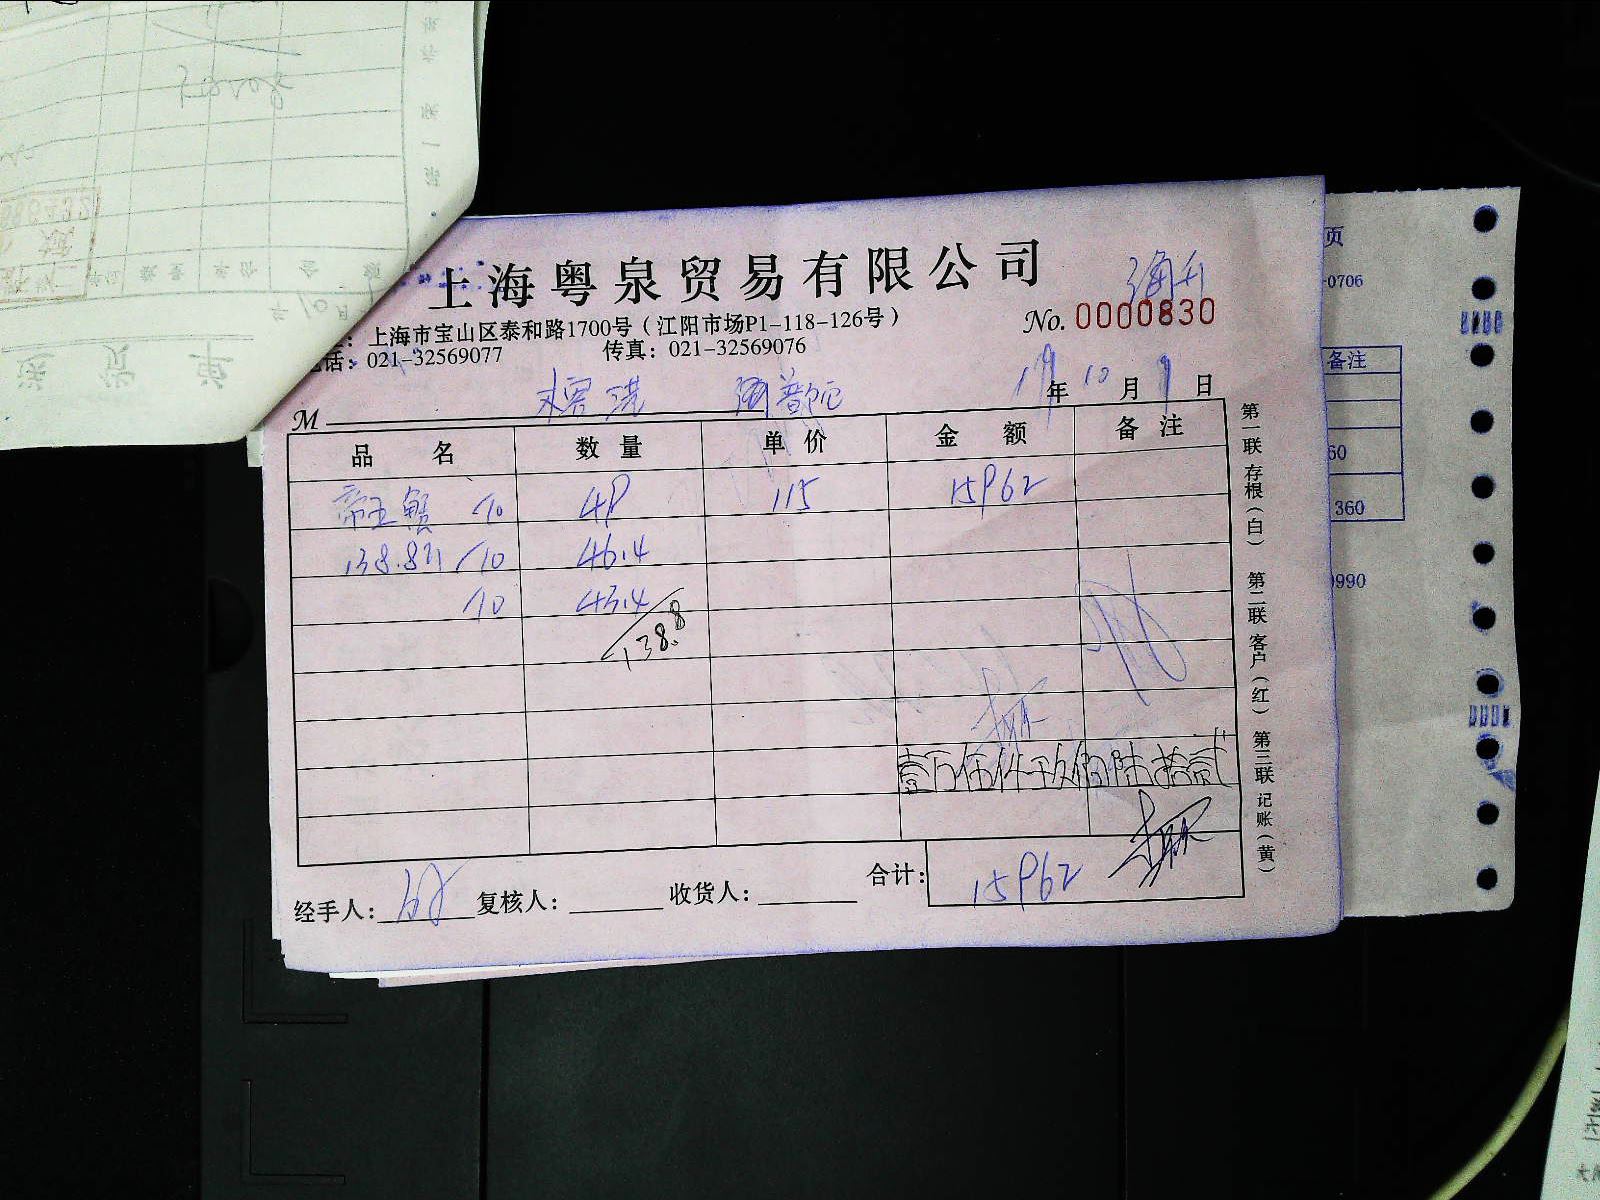 上海粤泉贸易有限公司
海升
上海市宝山区泰和路1700号（江阳市场P1-118-126号）
No. 0000830
话：021-32569077 传真：021-32569076
M
19年10月9日
品名 数量 单价 金额 备注
帝王蟹 /10 49 115 15962
138.8斤 /10 46.4
/10 43.4
138.8
壹万伍仟玖佰陆拾贰
合计： 15962
经手人： 复核人： 收货人：
第一联 存根（白） 第二联 客户（红） 第三联 记账（黄）
页
-0706
备注
60
360
0990
送货单